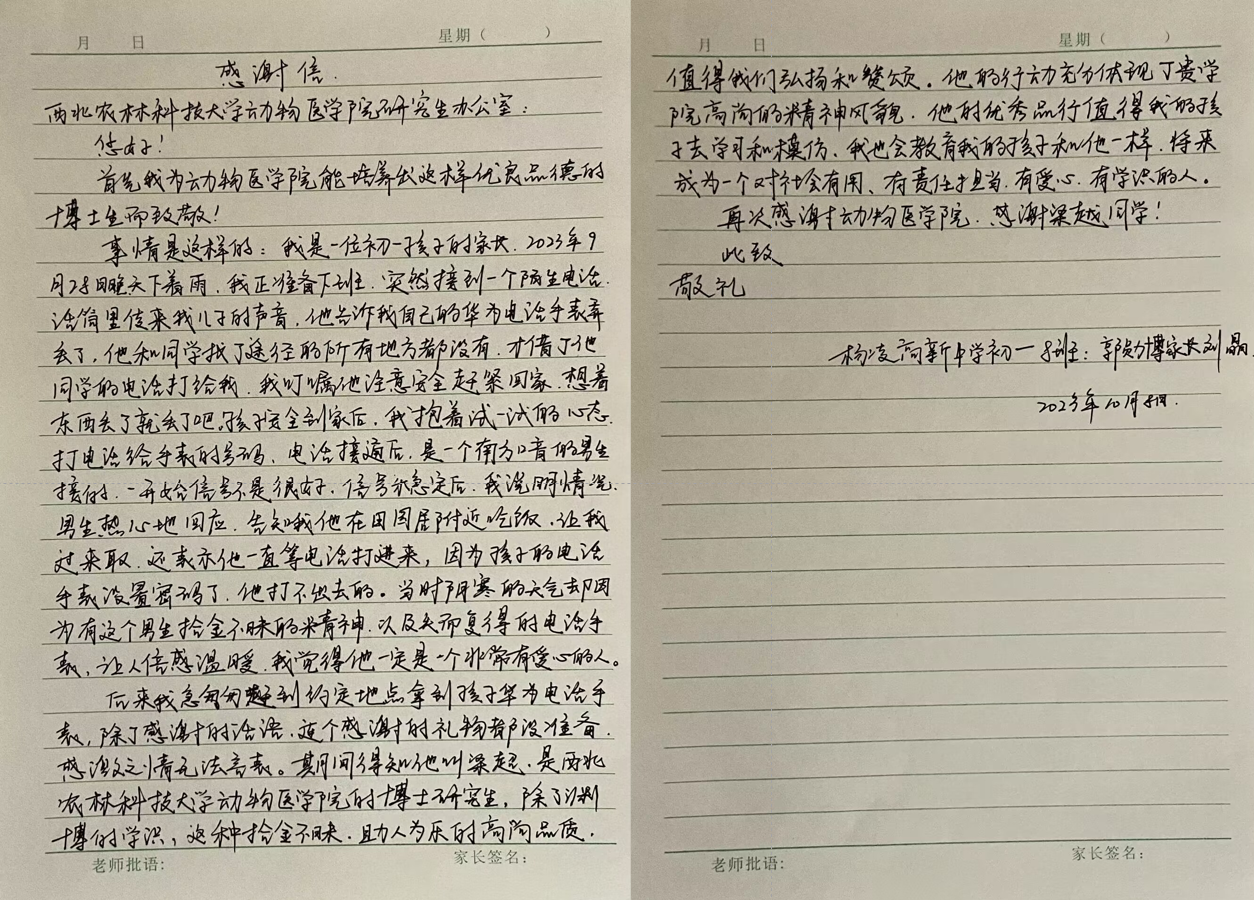 月 日 星期（ ）
感谢信.
西北农林科技大学动物医学院研究生办公室：
您好！
首先我为动物医学院能培养出这样优良品德的
博士生而致敬！
事情是这样的：我是一位初一孩子的家长.2023年9
月28日晚天下着雨.我正准备下班.突然接到一个陌生电话.
话筒里传来我儿子的声音.他告诉我自己的华为电话手表弄
丢了.他和同学找了途径的所有地方都没有.才借了他
同学的电话打给我.我叮嘱他注意安全赶紧回家.想着
东西丢了就丢了吧.孩子安全到家后.我抱着试一试的心态.
打电话给手表的号码、电话接通后.是一个南方口音的男生
接的.一开始信号不是很好.信号稳定后.我说明情况.
男生热心地回应.告知我他在田园居附近吃饭.让我
过来取.还表示他一直等电话打进来，因为孩子的电话
手表设置密码了.他打不出去的。当时阴寒的天气却因
为有这个男生拾金不昧的精神.以及失而复得的电话手
表，让人倍感温暖.我觉得他一定是一个非常有爱心的人。
后来我急匆匆赶到约定地点拿到孩子华为电话手
表，除了感谢的话语.连个感谢的礼物都没准备.
感激之情无法言表。其间得知他叫梁越.是西北
农林科技大学动物医学院的博士研究生，除了渊
博的学识，这种拾金不昧.助人为乐的高尚品质.
老师批语: 家长签名：
月 日 星期（ ）
值得我们弘扬和赞颂。他的行动充分体现了贵学
院高尚的精神风貌.他的优秀品行值得我的孩
子去学习和模仿、我也会教育我的孩子和他一样.将来
成为一个对社会有用、有责任担当.有爱心.有学识的人。
再次感谢动物医学院.感谢梁越同学！
此致
敬礼
杨凌高新中学初一8班：郭 博家长刘
2023年10月8日.
老师批语: 家长签名：